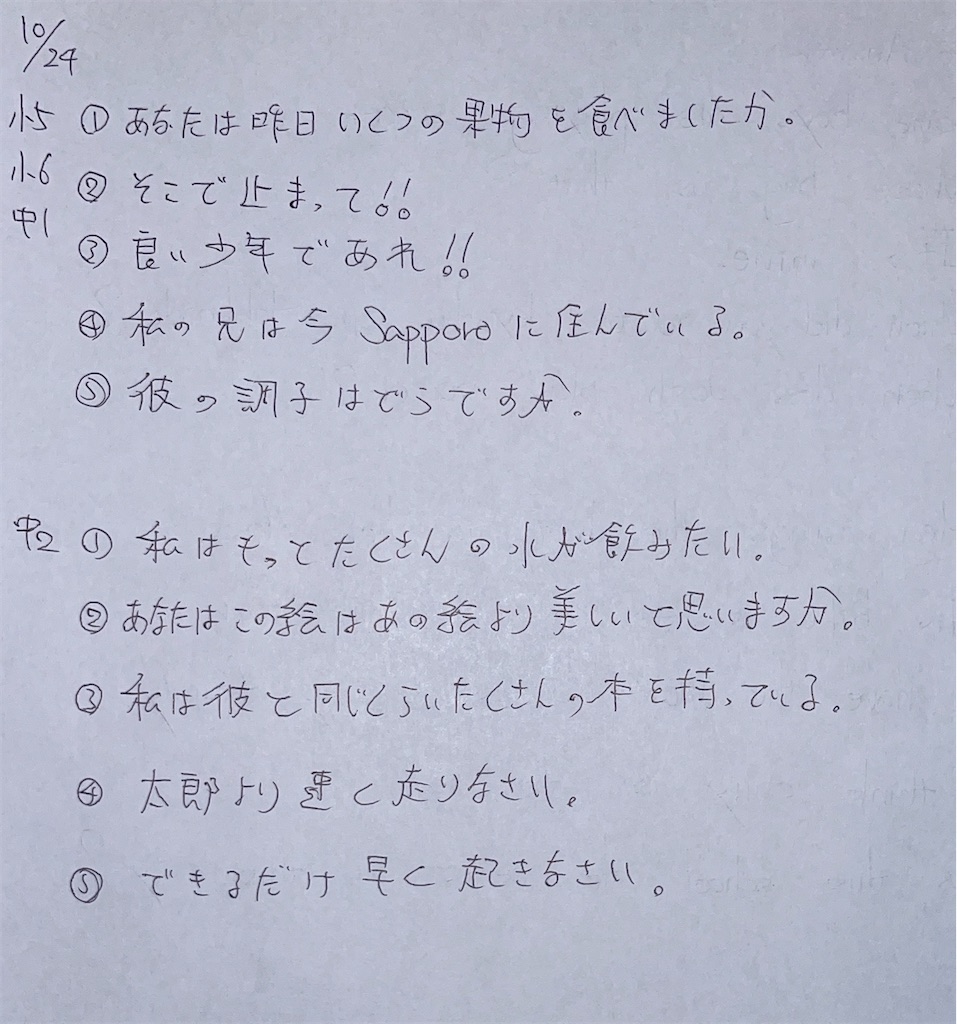 10/24
小5 ① あなたは昨日いくつの果物を食べましたか。
小6 ② そこで止まって!!
中1
③ 良い少年であれ!!
④ 私の兄は今 Sapporo に住んでいる。
⑤ 彼の調子はどうですか。
中2 ① 私はもっとたくさんの水が飲みたい。
② あなたはこの絵はあの絵より美しいと思いますか。
③ 私は彼と同じくらいたくさんの本を持っている。
④ 太郎より速く走りなさい。
⑤ できるだけ早く起きなさい。